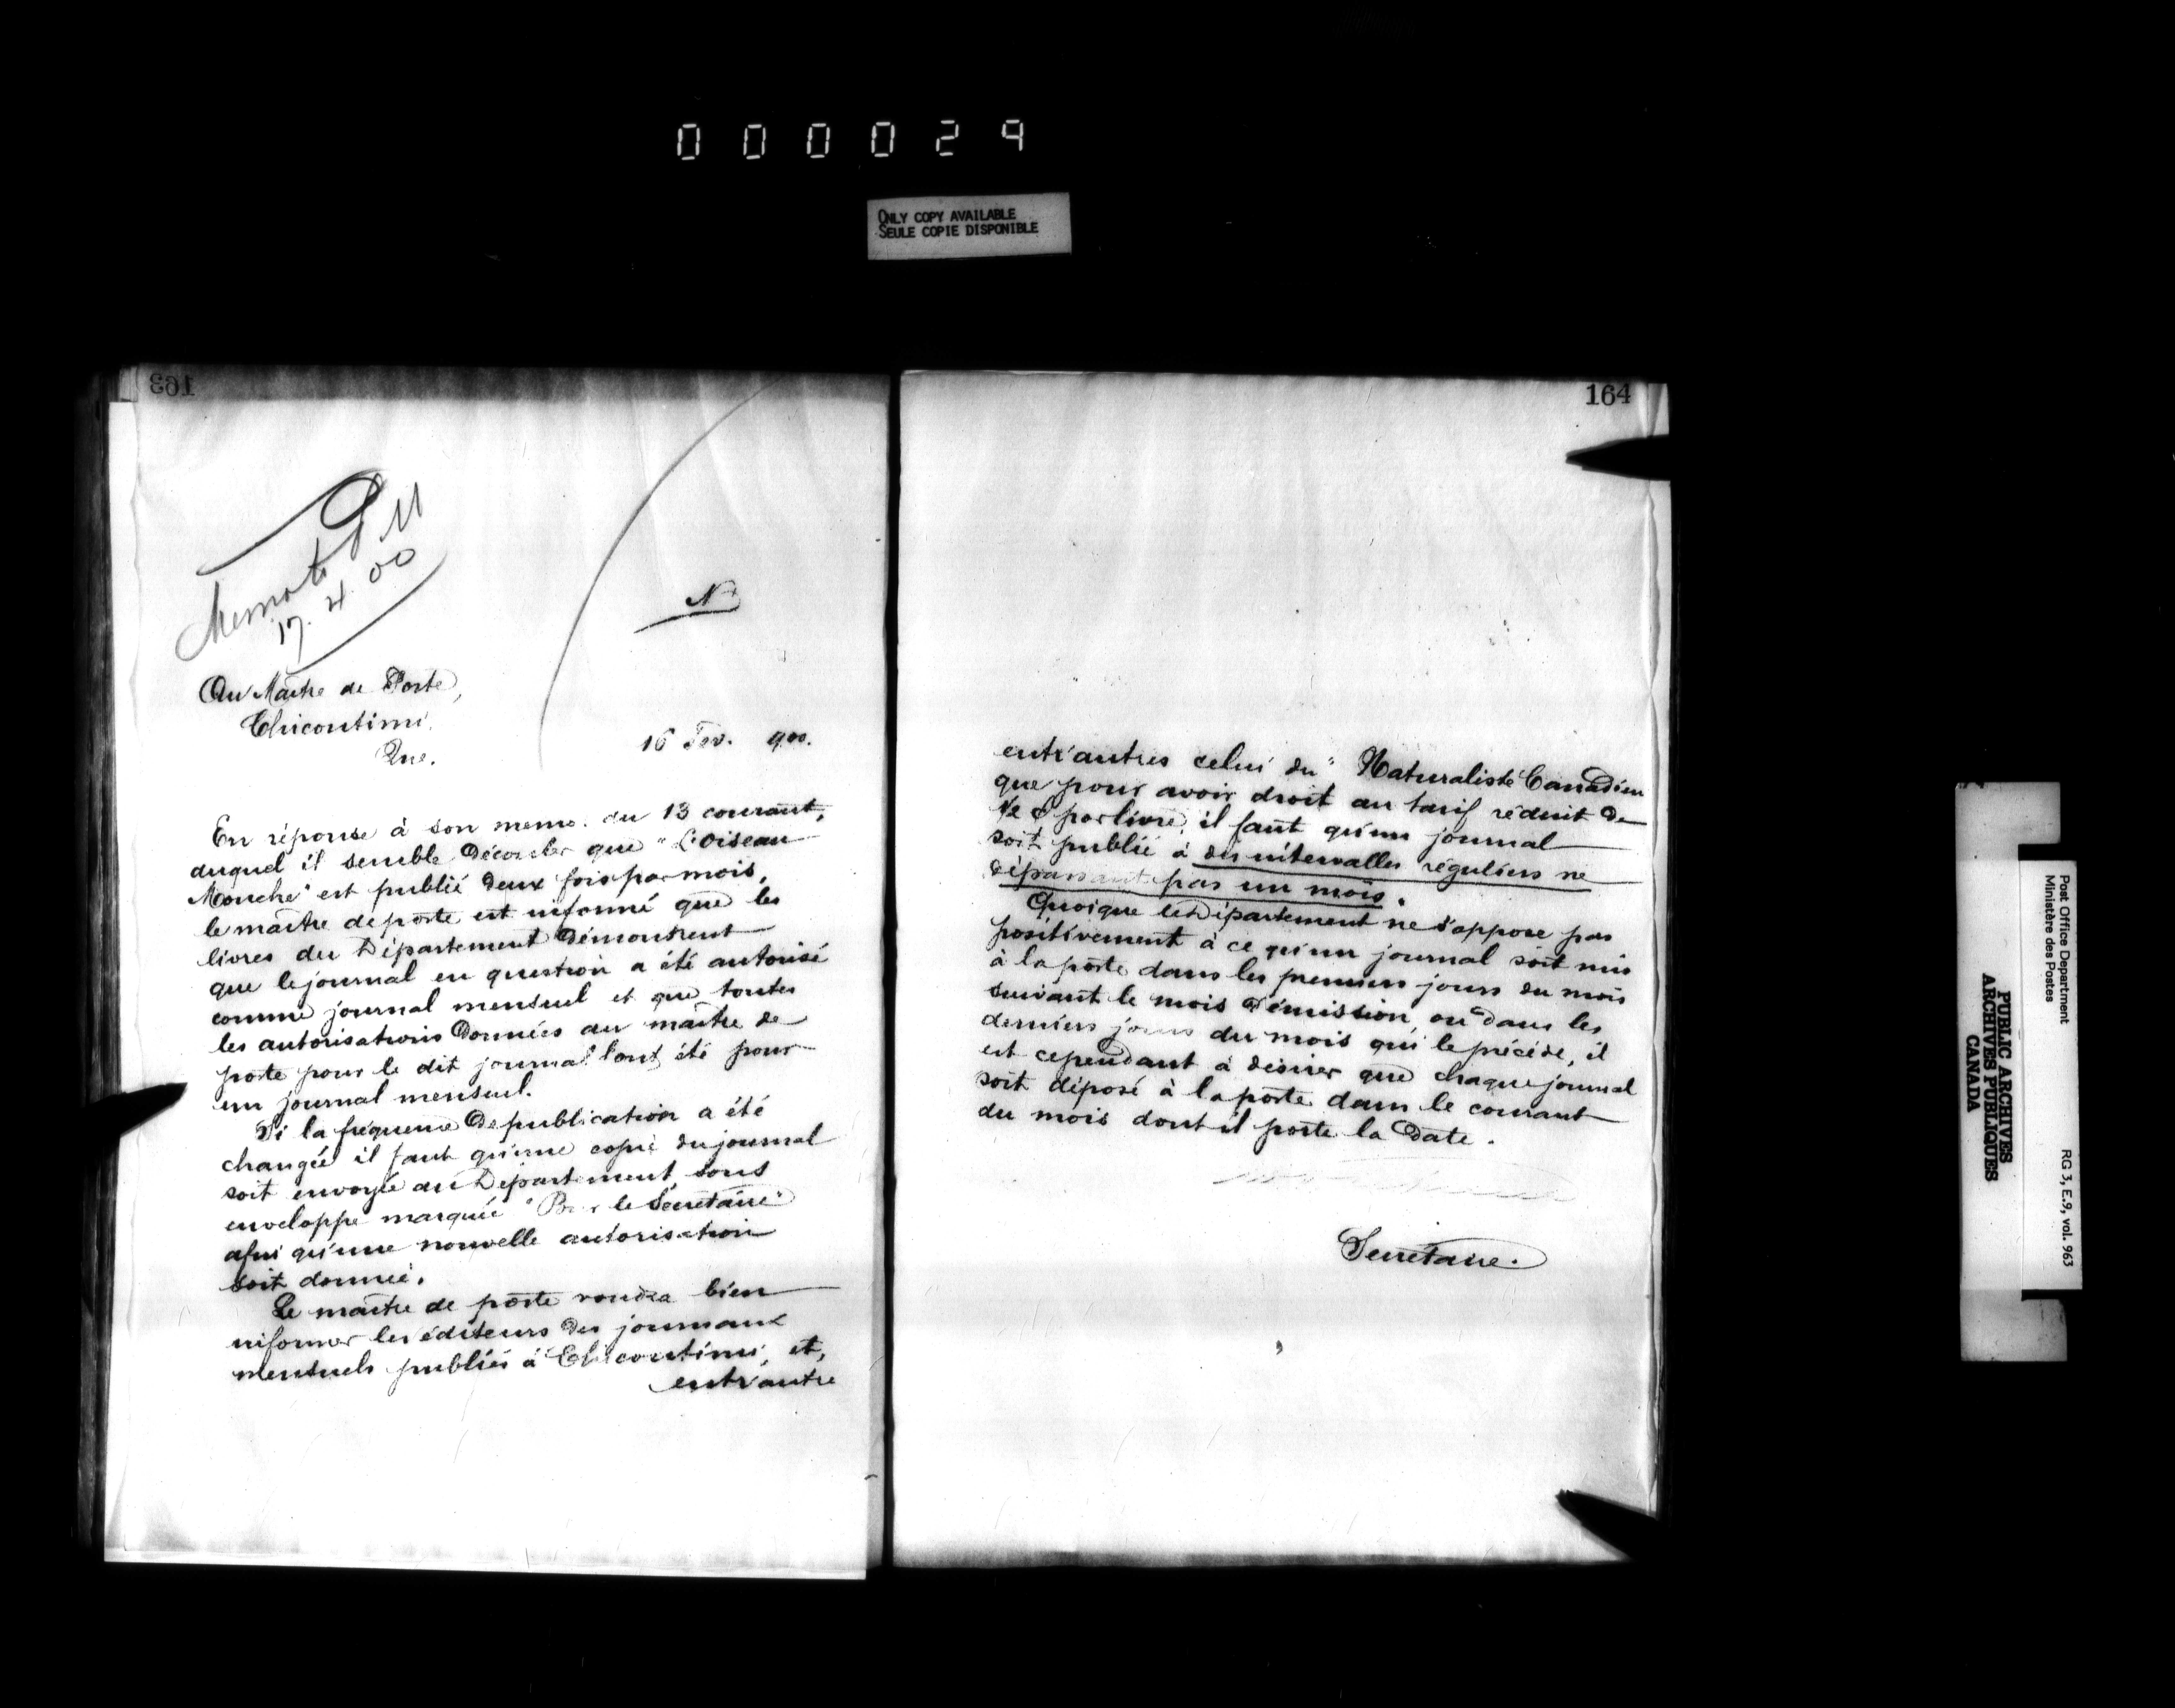 000029
ONLY COPY AVAILABLE
SEULE COPIE DISPONIBLE
163
Memo to P M
17. 4. 00
N
Au Maître de Poste,
Chicoutimi.
Que.
16 Fev. 900.
En réponse à son memo. du 13 courant,
duquel il semble découler que "L'Oiseau
Mouche" est publié deux fois par mois,
le maître de poste est informé que les
livres du Département démontrent
que le journal en question a été autorisé
comme journal mensuel et que toutes
les autorisations données au maître de
poste pour le dit journal l'ont été pour
un journal mensuel.
Si la fréquence de publication a été
changée il faut qu'une copie du journal
soit envoyée au Département, sous
enveloppe marquée "Pour le Secrétaire"
afin qu'une nouvelle autorisation
soit donnée.
Le maître de poste voudra bien
informer les éditeurs des journaux
mensuels publiés à Chicoutimi, et,
entr'autre
164
entr'autres celui du "Naturaliste Canadien
que pour avoir droit au tarif réduit de
par livre, il faut qu'un journal
soit publié à des intervalles réguliers ne
dépassant pas un mois.
Quoique le Département ne s'oppose pas
positivement à ce qu'un journal soit mis
à la poste dans les premiers jours du mois
suivant le mois d'émission, ou dans les
derniers jours du mois qui le précède, il
est cependant à désirer que chaque journal
soit déposé à la poste dans le courant
du mois dont il porte la date.
Secrétaire.
Post Office Department
Ministère des Postes
RG 3, E.9, vol. 963
PUBLIC ARCHIVES
ARCHIVES PUBLIQUES
CANADA